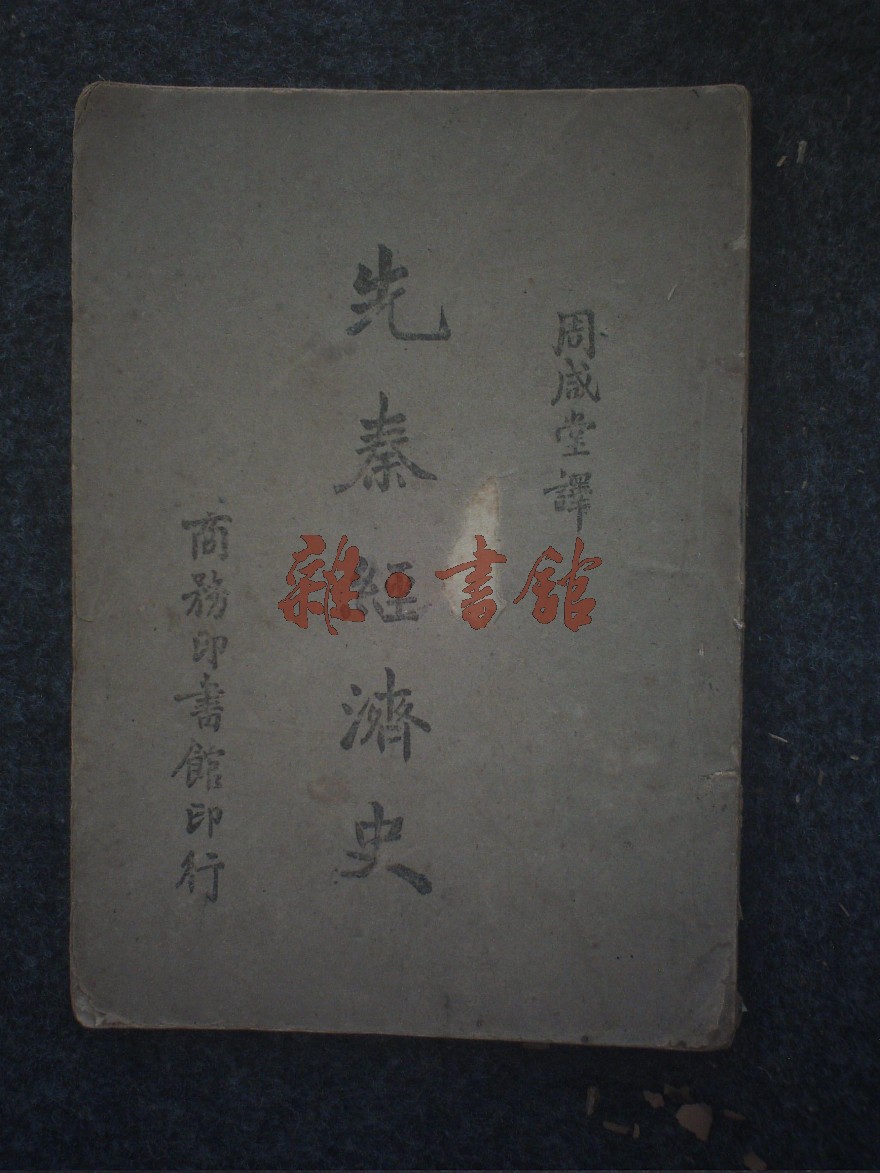 周咸堂譯
先秦經濟史
商務印書館印行
雜·書館